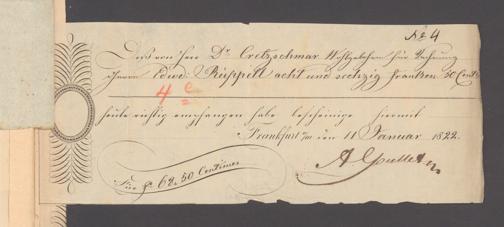 No 4
Daß von Herr Dr Cretzschmar Wohlgeboren für Rechnung
Herrn Edwd: Rüppell acht und sechzig Franken 50 Cent
4
heute richtig empfangen habe bescheinige hiermit
Frankfurt a/m den 11 Januar 1822.
Für fs 68.50 Centimes